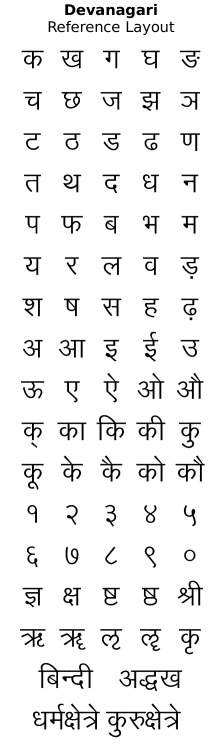 Devanagari
Reference Layout
क ख ग घ ङ
च छ ज झ ञ
ट ठ ड ढ ण
त थ द ध न
प फ ब भ म
य र ल व ड़
श ष स ह ढ़
अ आ इ ई उ
ऊ ए ऐ ओ औ
क् का कि की कु
कू के कै को कौ
१ २ ३ ४ ५
६ ७ ८ ९ ०
ज्ञ क्ष ष्ट ष्ठ श्री
ऋ ॠ ऌ ॡ कृ
बिन्दी अद्धख
धर्मक्षेत्रे कुरुक्षेत्रे